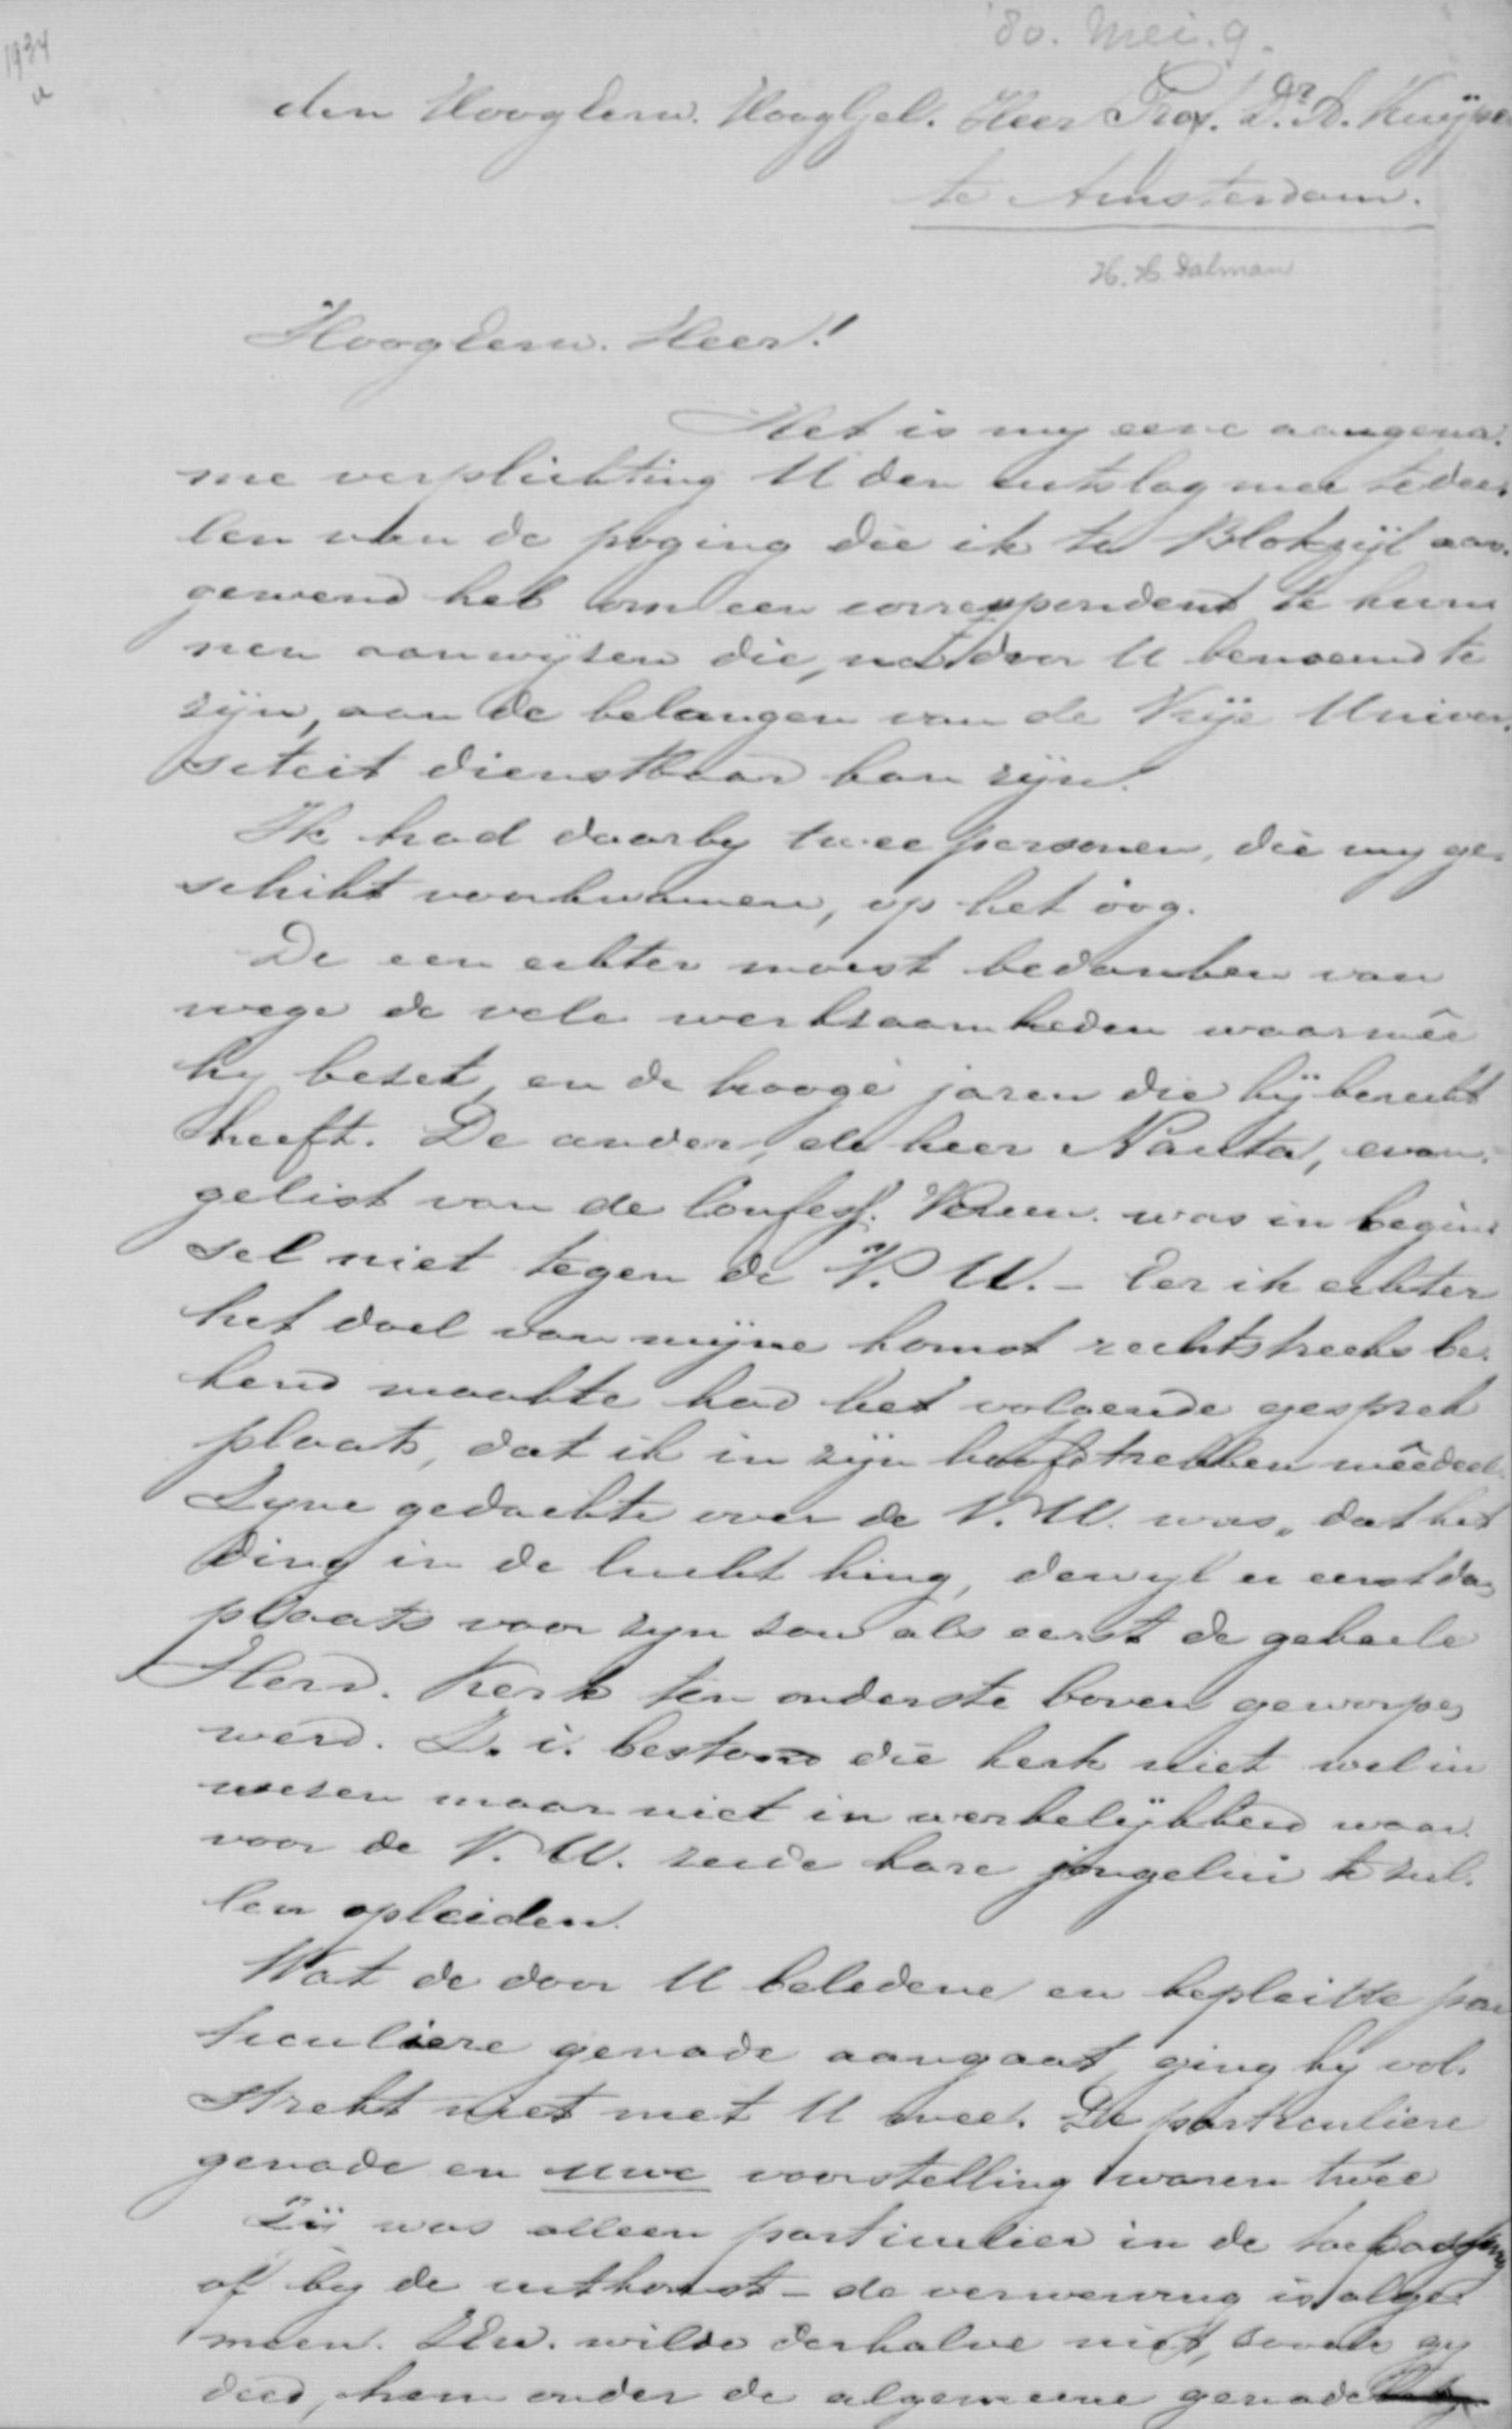 1934
a
'80. Mei. 9.
den HoogEerw. HoogGel. Heer Prof. Dr. A. Kuijper
te Amsterdam.
H. H. Dalman
HoogEerw. Heer!
Het is my eene aangena-
me verplichting U den uitslag mee te dee-
len van de poging die ik te Blokzijl aan-
gewend heb om een correspondent te kun-
nen aanwijzen die, na door U benoemd te
zijn, aan de belangen van de Vrije Univer-
siteit dienstbaar kan zijn.
Ik had daarby twee personen, die my ge-
schikt voorkwamen, op het oog.
De een echter moest bedanken van
wege de vele werkzaamheden waarmêe
hy bezet, en de hooge jaren die hij bereikt
heeft. De ander, de heer Nauta, evan-
gelist van de Confess. Vereen. was in begin-
sel niet tegen de V. U. - Eer ik echter
het doel van mijne komst rechtstreeks be-
kend maakte had het volgende gesprek
plaats, dat ik in zijn hoofdtrekken mêedeel.
Zyne gedachte over de V. U. was, dat het
ding in de lucht hing, dewyl er eerst dan
plaats voor zyn zou als eerst de geheele
Herv. Kerk ten onderste boven geworpen
werd. Z. i. bestond die kerk niet wel in
wezen maar niet in werkelijkheid waar-
voor de V. U. zeide hare jongelui te zul-
len opleiden.
Wat de door U beledene en bepleitte par
ticuliere genade aangaat, ging hy vol-
strekt niet met U mee. De particuliere
genade en uwe voorstelling waren twee
Zij was alleen particulier in de toepassing
of by de uitkomst - de verwerving is alge-
meen. ZEw. wilde derhalve niet, zooals gy
deed, hem onder de algemeene genade